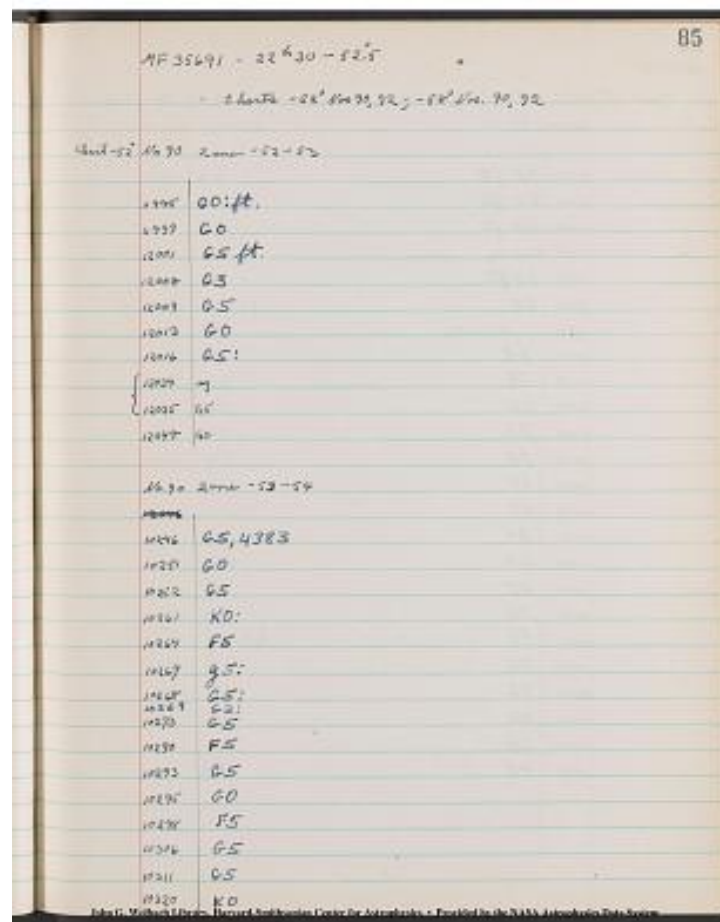 85
MF 35691 - 22h 30 - 52.5
Charts -52° Nos 90, 92; -58° Nos. 90, 92
Chart -52° No 90 Zone -52-53
GO:ft.
GO
12001 G5 ft.
G3
12009 G5
12012 GO
12016 G5:
G5
GO
No 90 Zone -53-54
10246 G5, 4383
10251 GO
10252 G5
10261 KO:
10264 F5
10267 g5:
10268 G5:
10269 G2:
10273 G5
10290 F5
10293 G5
10295 GO
10298 F5
10306 G5
10311 G5
10320 KO
John G. Wolbach Library, Harvard-Smithsonian Center for Astrophysics • Provided by the NASA Astrophysics Data System